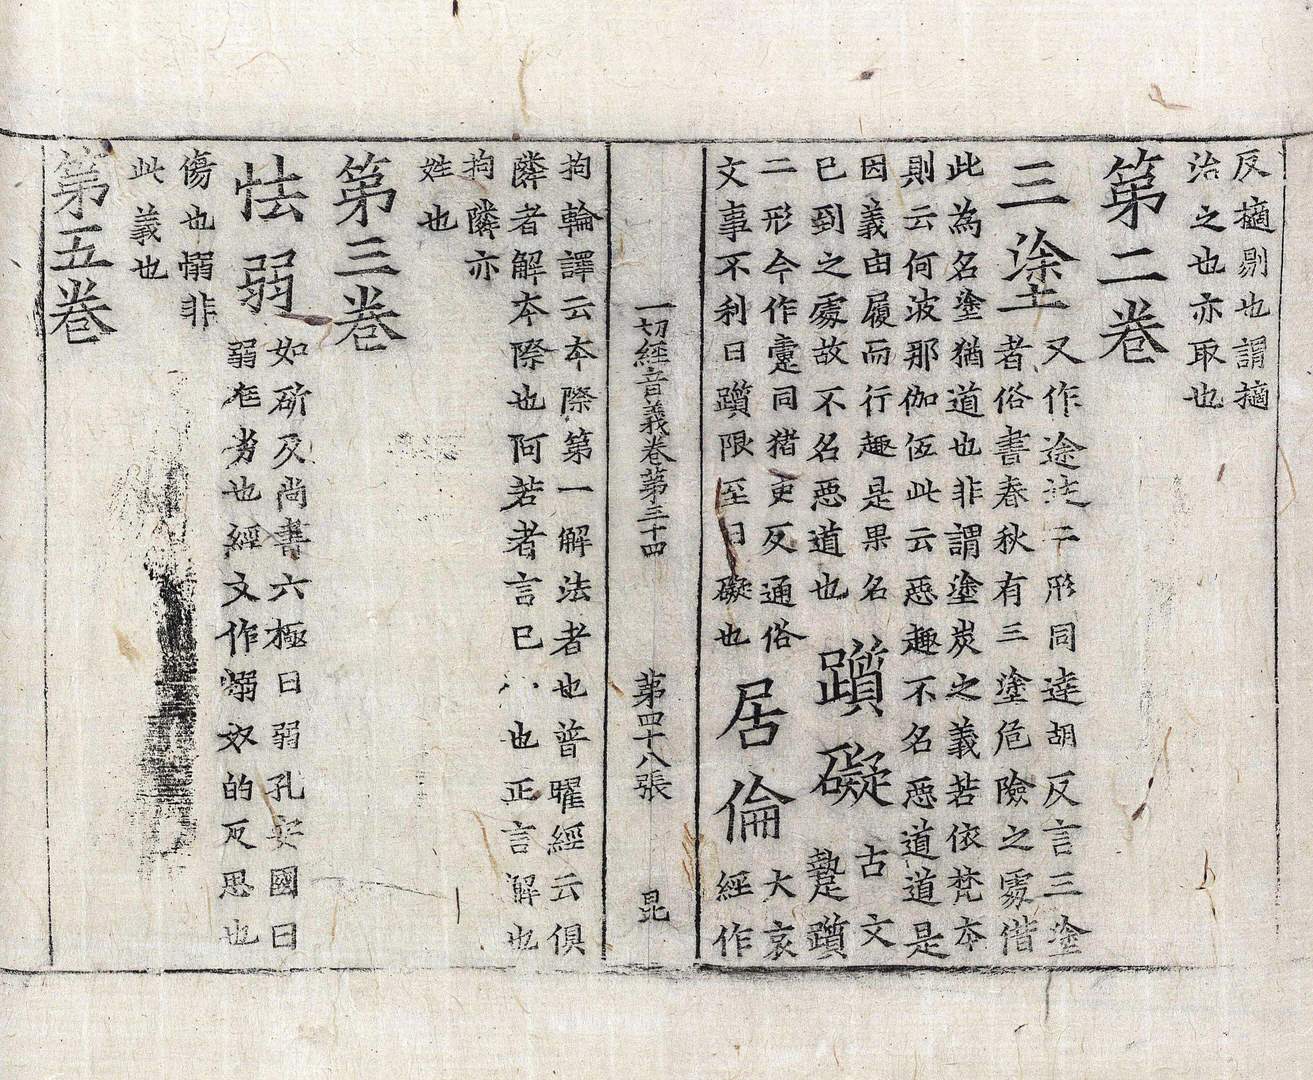 反擿剔也謂擿
治之也亦取也
第二卷
三塗
又作途 二形同達胡反言三塗
者俗書春秋有三塗危險之處借
此為名塗猶道也非謂塗炭之義若依梵本
則云何波那伽伍此云惡趣不名惡道道是
因義由履而行趣是果名
已到之處故不名惡道也
躓礙
古文
躓
二形今作疐同猪吏反通俗
文事不利曰躓限至曰礙也
居倫
大哀
經作
一切經音義卷第三十四 第四十八張 昆
拘輪譯云本際第一解法者也普曜經云俱
隣者解本際也阿若者言已 也正言解也
拘隣亦
姓也
第三卷
怯弱
如斫反尚書六極曰弱孔安國曰
弱尫劣也經文作愵奴的反思也
傷也愵非
此義也
第五卷